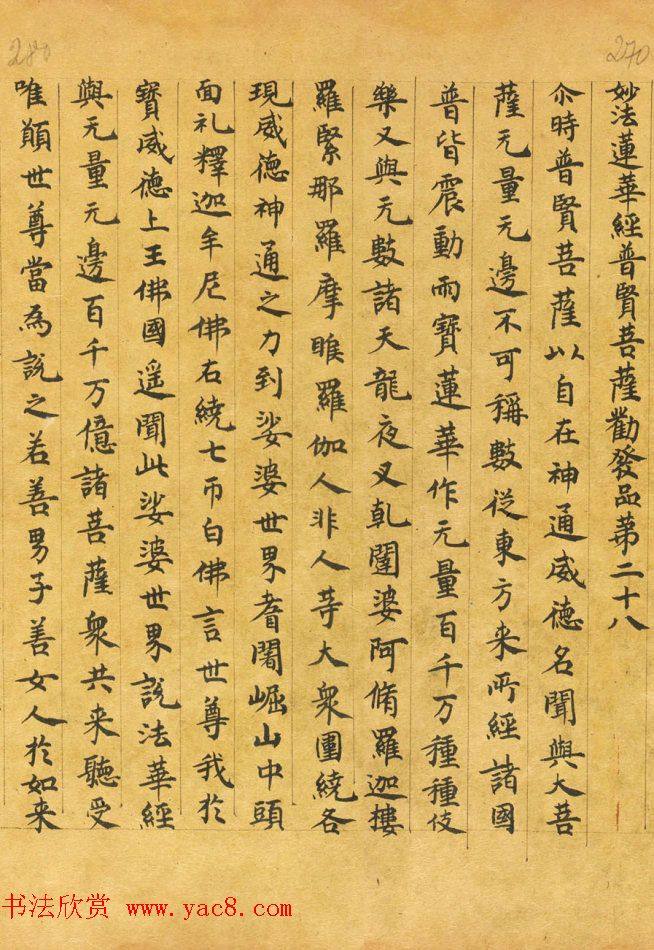 270
280
妙法蓮華經普賢菩薩勸發品苐二十八
尒時普賢菩薩以自在神通威德名聞與大菩
薩无量无邊不可稱數從東方来所經諸國
普皆震動雨寶蓮華作无量百千万種種伎
樂又與无數諸天龍夜叉乹闥婆阿脩羅迦樓
羅緊那羅摩睺羅伽人非人䓁大衆圍繞各
現威德神通之力到娑婆世界耆闍崛山中頭
面礼釋迦牟尼佛右繞七帀白佛言世尊我於
寶威德上王佛國遥聞此娑婆世界說法華經
與无量无邊百千万億諸菩薩衆共来聽受
唯願世尊當為說之若善男子善女人於如来
书法欣赏 www.yac8.com